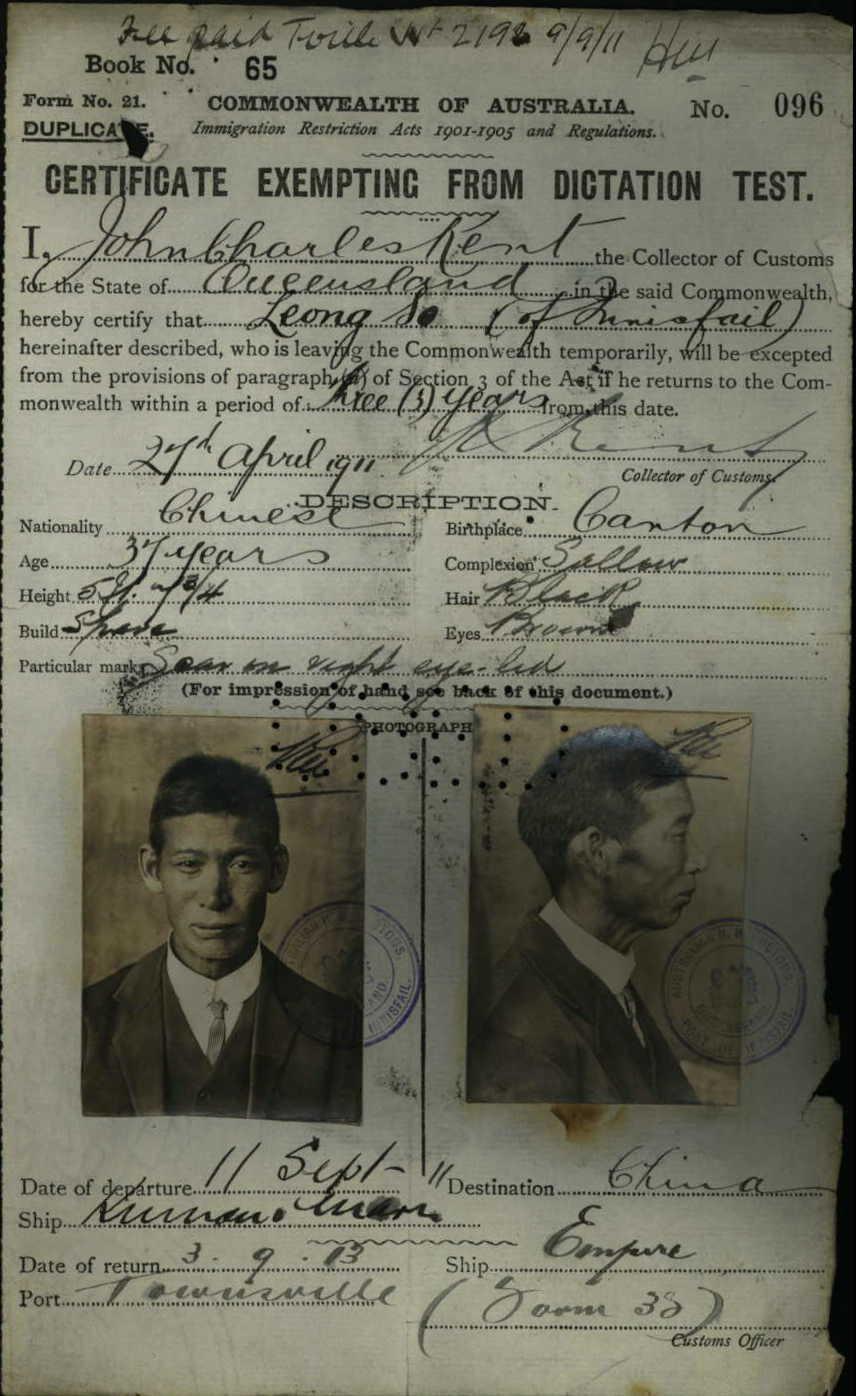 Fee paid T'ville No 2198 9/9/11
Book No. 65
Form No. 21. COMMONWEALTH OF AUSTRALIA. No. 096
DUPLICATE. Immigration Restriction Acts 1901-1905 and Regulations.
CERTIFICATE EXEMPTING FROM DICTATION TEST.
I, John Charles Kent the Collector of Customs
for the State of Queensland in the said Commonwealth,
hereby certify that Leong So (of Innisfail)
hereinafter described, who is leaving the Commonwealth temporarily, will be excepted
from the provisions of paragraph of Section 3 of the Act if he returns to the Com-
monwealth within a period of three (3) years from this date.
Date 27th April 1911
Collector of Customs.
DESCRIPTION.
Nationality Chinese Birthplace Canton
Age 37 years Complexion Sallow
Height 5ft. 7 3/4 Hair Black
Build Spare Eyes Brown
Particular marks Scar on right eye-lid
(For impression of hand see back of this document.)
PHOTOGRAPH
INNISFAIL.
Date of departure 11 Sept 11 Destination China
Ship Kumano Maru
Date of return 3. 9. 13 Ship Empire
Port Townsville (Form 33)
Customs Officer